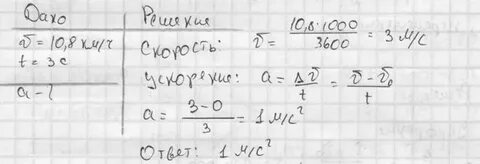 Дано
v = 10,8 км/ч
t = 3 с
a - ?
Решение
Скорость: v = 10,8·1000/3600 = 3 м/с
ускорение: a = Δv/t = v - v₀/t
a = 3-0/3 = 1 м/с²
Ответ: 1 м/с²